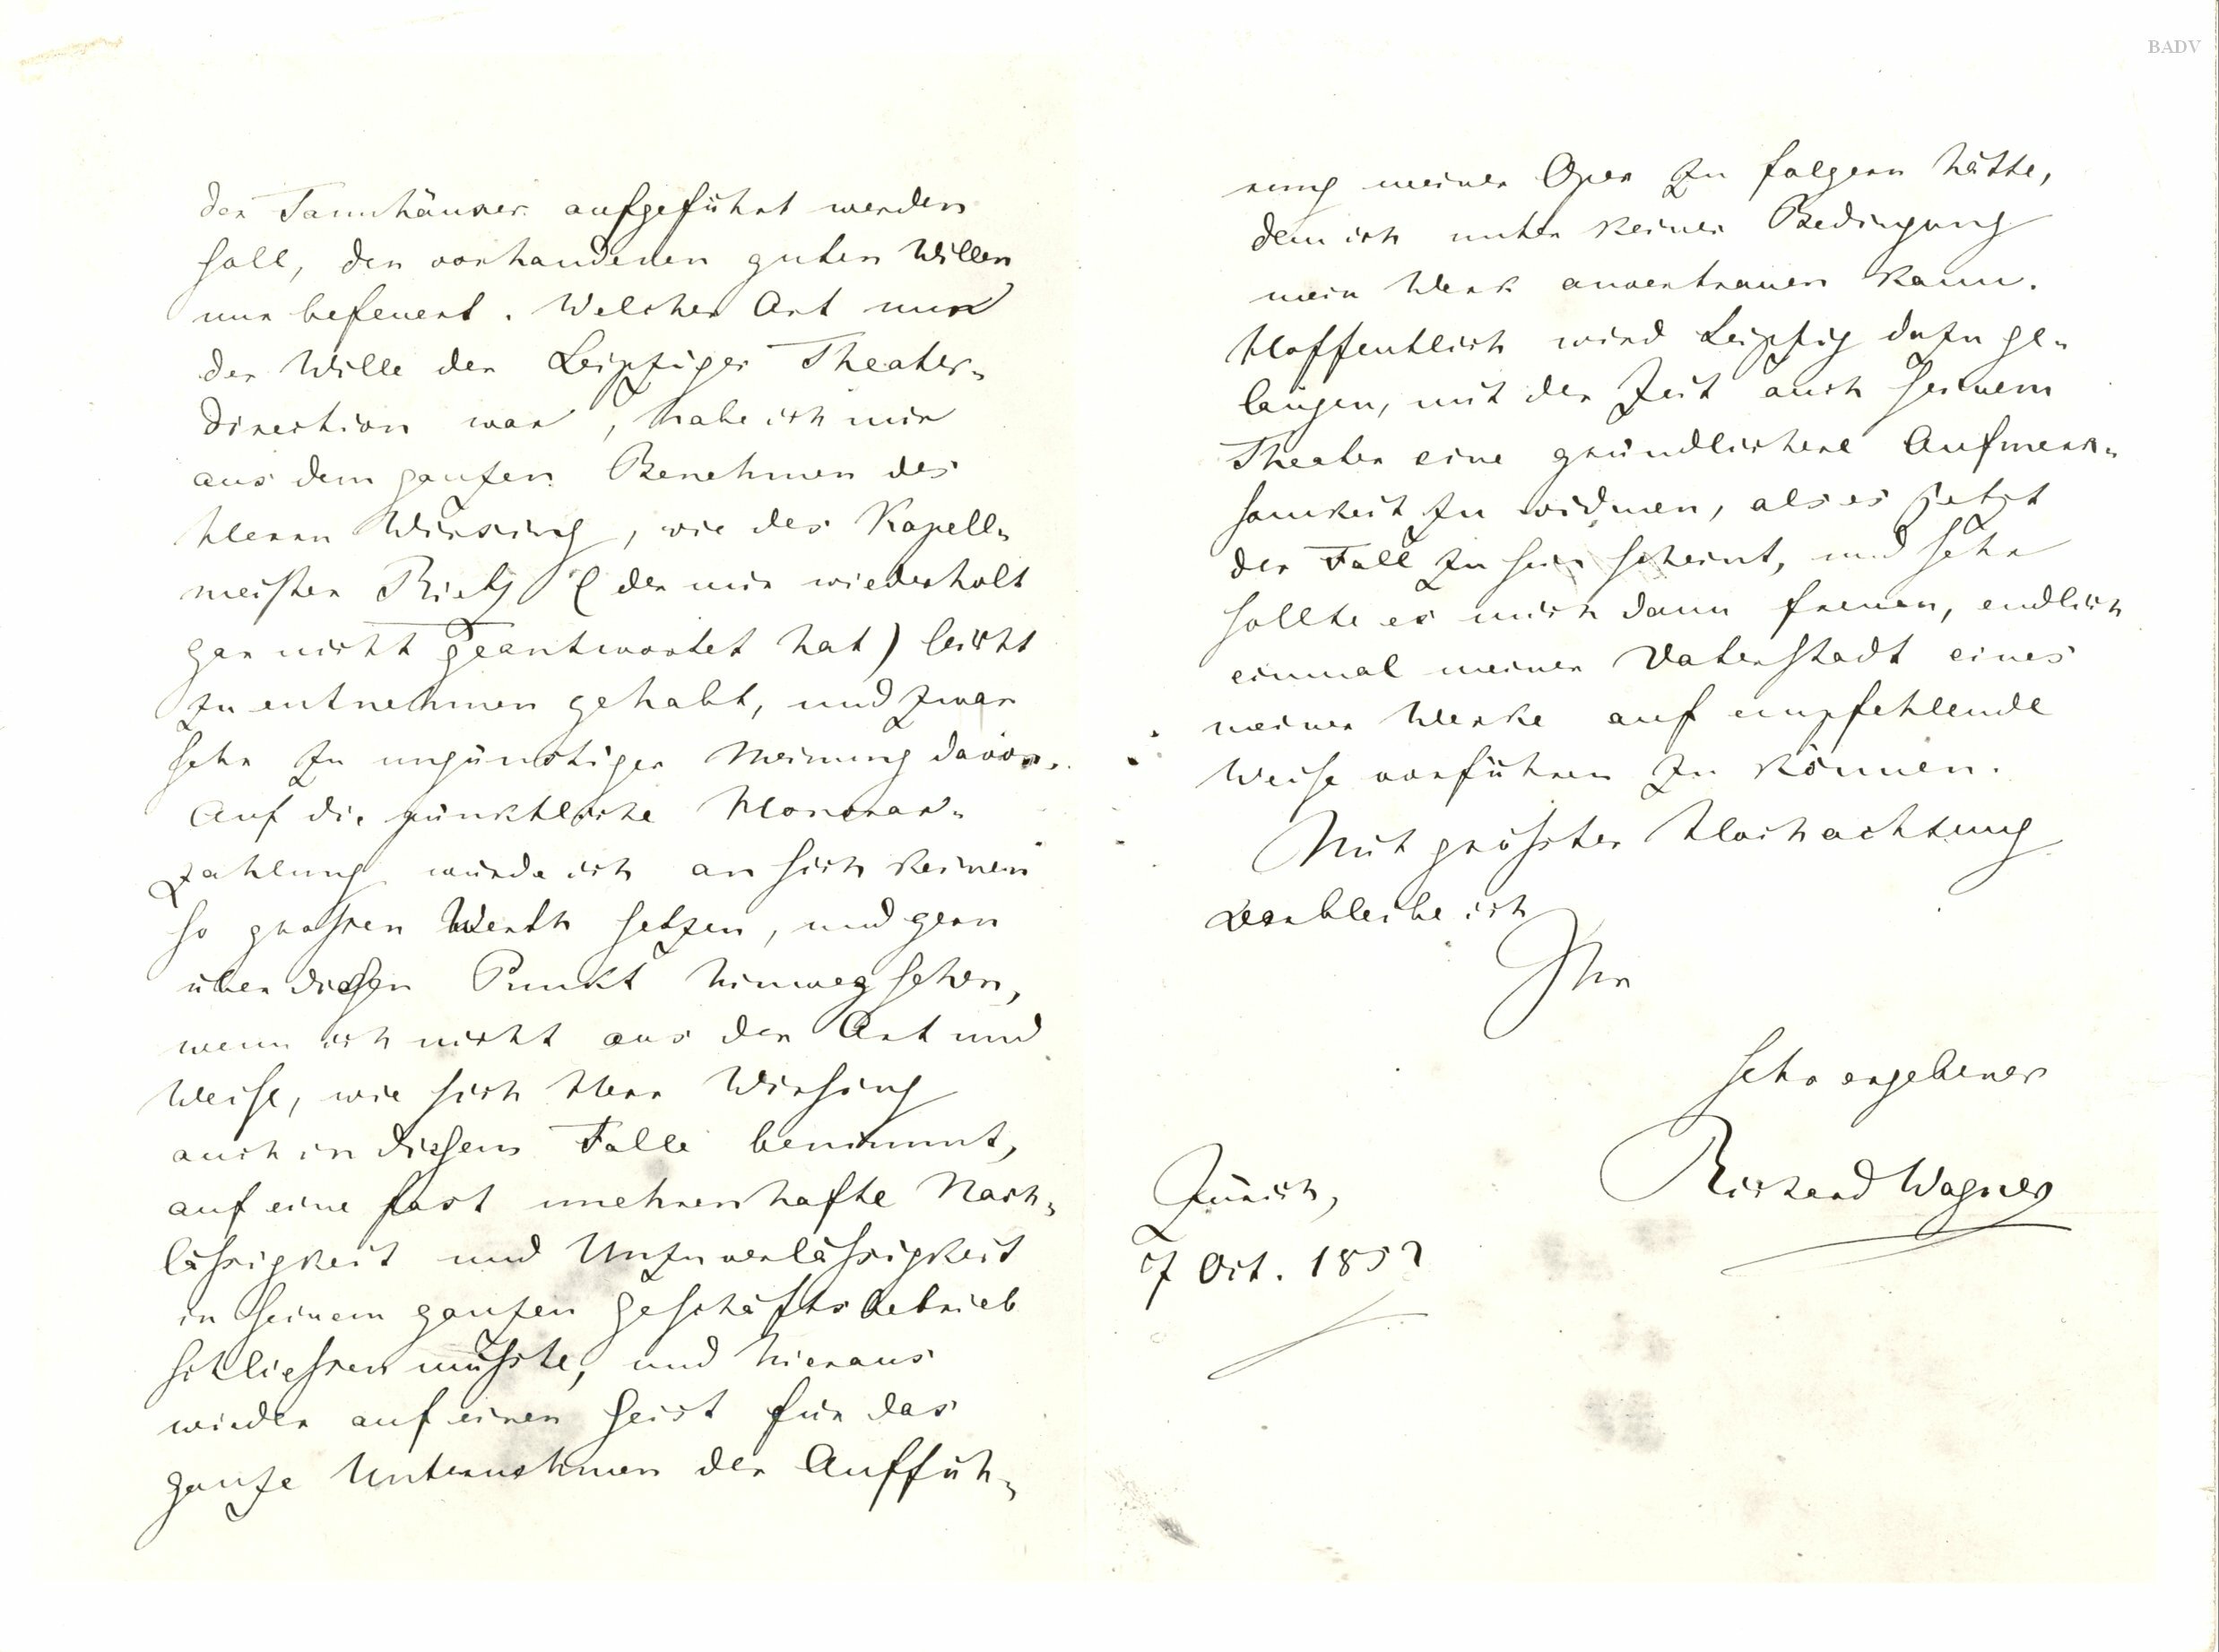 BADV
der Tannhäuser aufgeführt werden
soll, den vorhandenen guten Willen
nur befeuert. Welcher Art nun
der Wille der Leipziger Theater-
direction war, habe ich mir
aus dem ganzen Benehmen des
Herrn Wirsing, wie des Kapell-
meister Rietz (der mir wiederholt
gar nicht geantwortet hat) leicht
zu entnehmen gehabt, und zwar
sehr zu ungünstiger Meinung davon.
Auf die pünktliche Honorar-
zahlung würde ich an sich keinen
so grossen Werth setzen, und gern
über diesen Punkt hinwegsehen,
wenn ich nicht aus der Art und
Weise, wie sich Herr Wirsing
auch in diesem Falle benimmt,
auf eine fast unehrenhafte Nach-
lässigkeit und Unzuverlässigkeit
in seinem ganzen Geschäftsbetrieb
schliessen müsste, und hieraus
wieder auf einen Geist für das
ganze Unternehmen der Auffüh-
rung meiner Oper zu folgern hätte,
dem ich unter keiner Bedingung
mein Werk anvertrauen kann.
Hoffentlich wird Leipzig dazu ge-
langen, mit der Zeit auch seinem
Theater eine gründlichere Aufmerk-
samkeit zu widmen, als es jetzt
der Fall zu sein scheint, und sehr
sollte es mich dann freuen, endlich
einmal meiner Vaterstadt eines
meiner Werke auf empfehlende
Weise vorführen zu können.
Mit grösster Hochachtung
verbleibe ich
Ihr
sehr ergebener
Richard Wagner
Zürich,
7 Oct. 1852